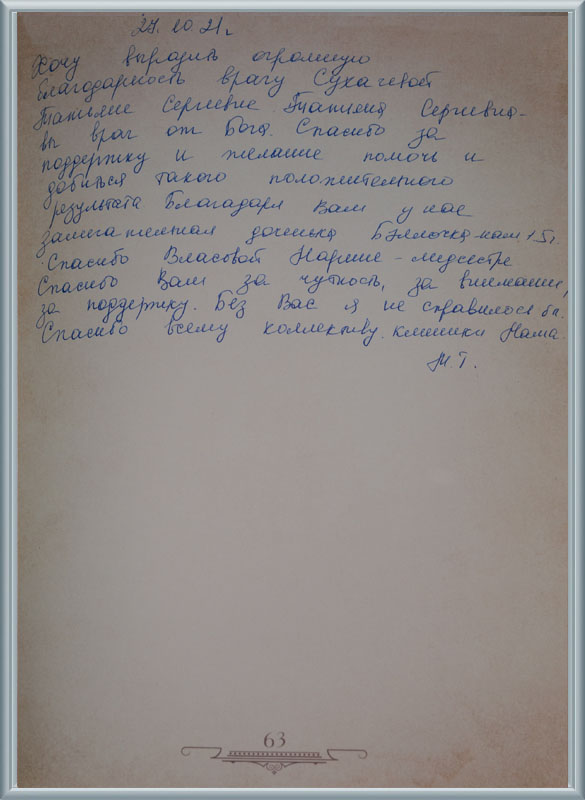 27.10.21г
Хочу выразить огромную
благодарность врачу Сухачевой
Татьяне Сергеевне. Татьяна Сергеевна-
вы врач от Бога. Спасибо за
поддержку и желание помочь и
добиться такого положительного
результата Благодаря Вам у нас
замечательная доченька Бэллочка-нам 1.5г.
Спасибо Власовой Нарине - медсестре
Спасибо Вам за чуткость, за внимание,
за поддержку. Без Вас я не справилась бы.
Спасибо всему коллективу клиники Нама.
М.Т.
63